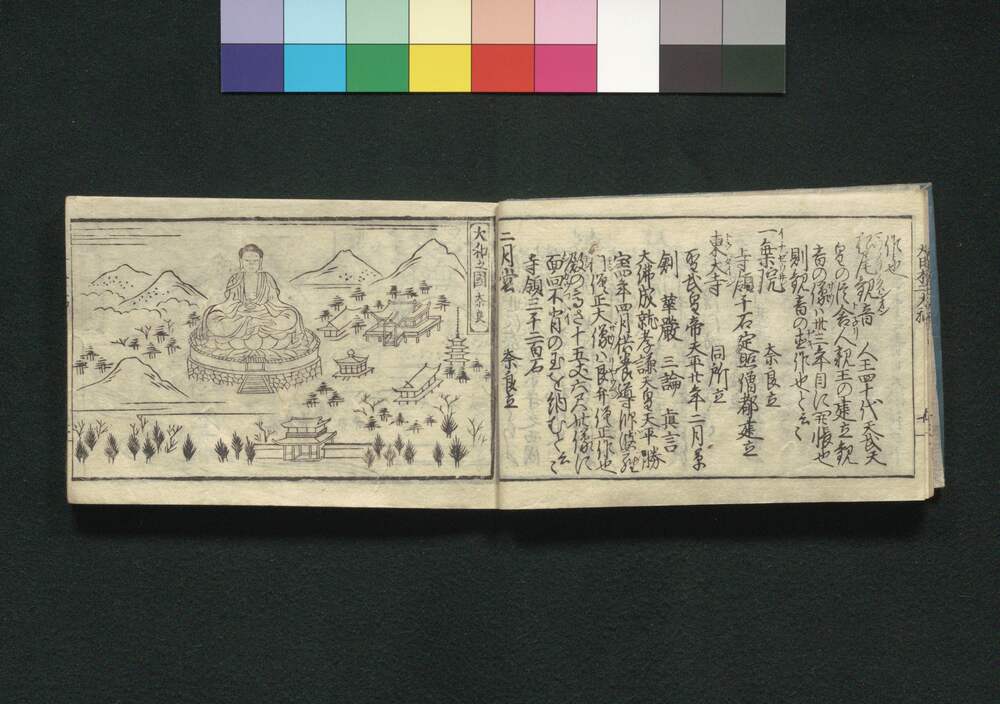 作也
観音 人王四十代天武天
皇の 舎人親王の建立観
音の像ハ卅三年目に 帳也
則観音の直作也と云々
一乗院 奈良立
寺領千石定照僧都建立
東大寺 同所立
聖武皇帝天平廿年二月草
創 華厳 三論 真言
大佛成就孝謙天皇天平勝
宝四年四月供養導師
僧正大像ハ良弁僧正作也
殿の高さ十五丈六尺
面向不背の玉を納むと云
寺領三千二百石
二月堂 奈良立
大和之國 奈良